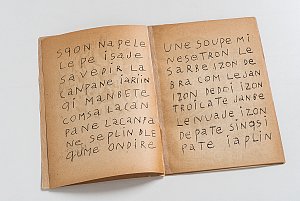 SQON NAPELE
LE PE ISAJE
SAVEDIR LA
CANPANE IARIIN
QI MANBETE
COMSA LACAN
PANE LACANPA
NE SEPLIN BLE
QUME ONDIRE
UNE SOUPE MI
NESOTRON LE
SARBE IZON DE
BRA COM LEJAN
IZON DEDOI IZON
TROILATE JANBE
LENUAJE IZON
DEPATE SINQSI
PATE IAPLIN